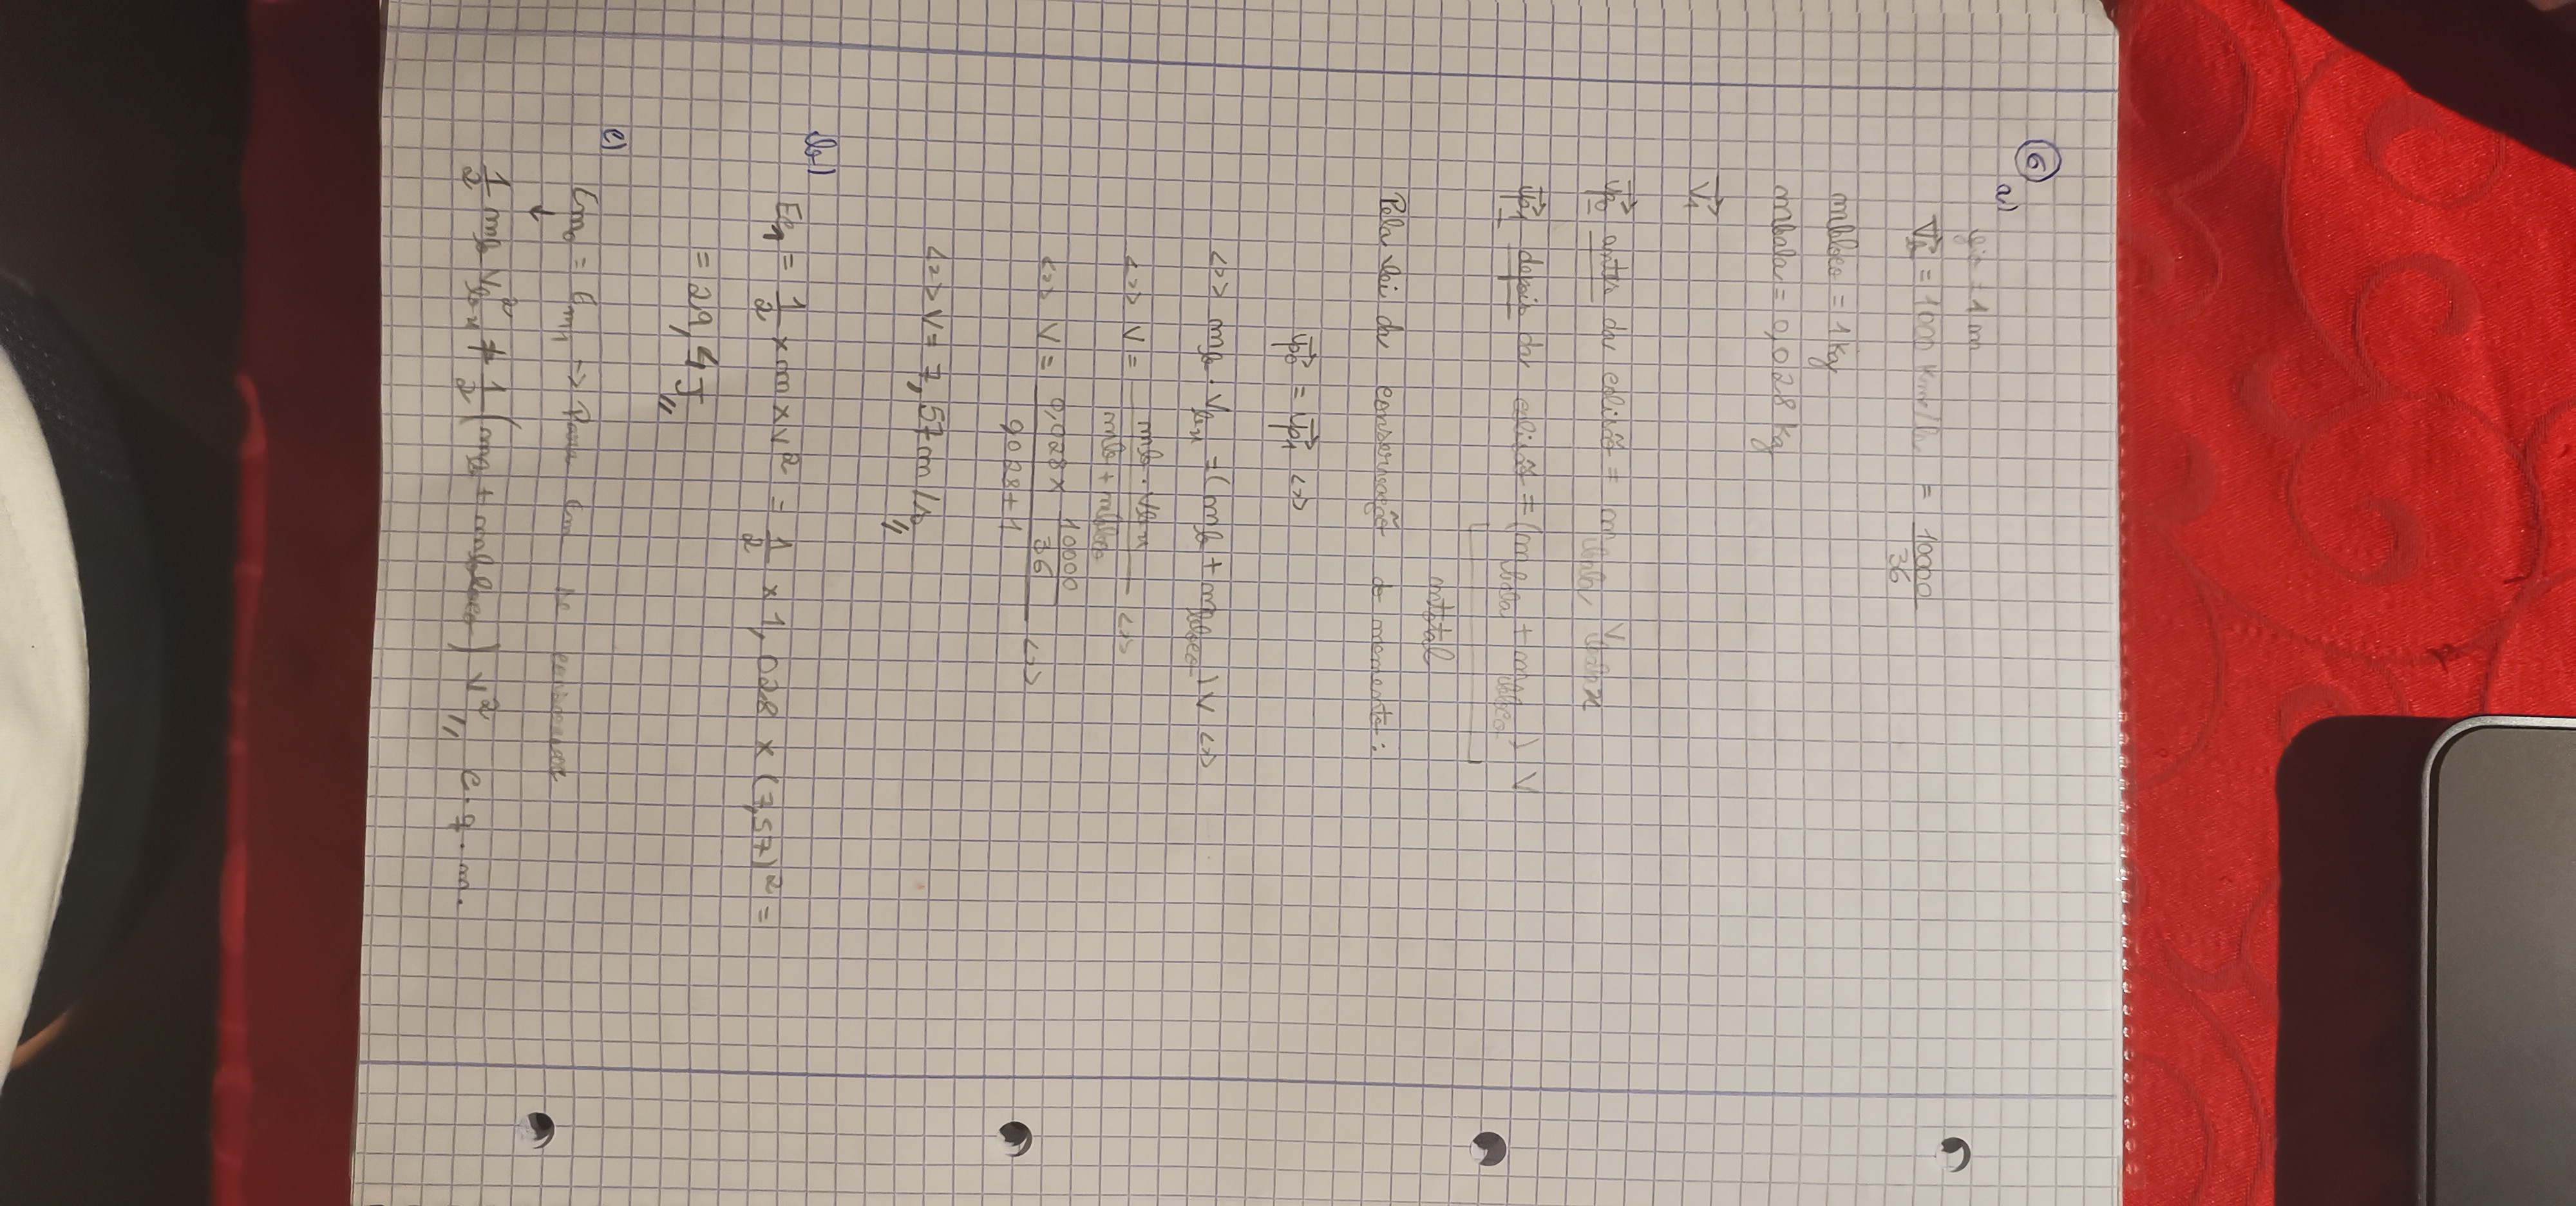 6
a)
= 1 m
= 1000 km/h = 10000/36
mbloco = 1 kg
mbala = 0,028 kg
V1
p0 antes da colisão = mbala Vbala x
p1 depois da colisão = (mbala + mbloco) V
mtotal
Pela lei da conservação do momento:
p0 = p1 <=>
<=> mb · Vbx = (mb + mbloco) V <=>
<=> V = mb · Vbx / mb + mbloco <=>
<=> V = 0,028 × 10000/36 / 0,028 + 1 <=>
<=> V = 7,57 m/s //
b)
Ec1 = 1/2 × m × v² = 1/2 × 1,028 × (7,57)² =
= 29,4 J //
c)
Em0 = Em1 => Para Em se conservar
↓
1/2 mb Vbx² ≠ 1/2 (mb + mbloco) v² // c.q.m.